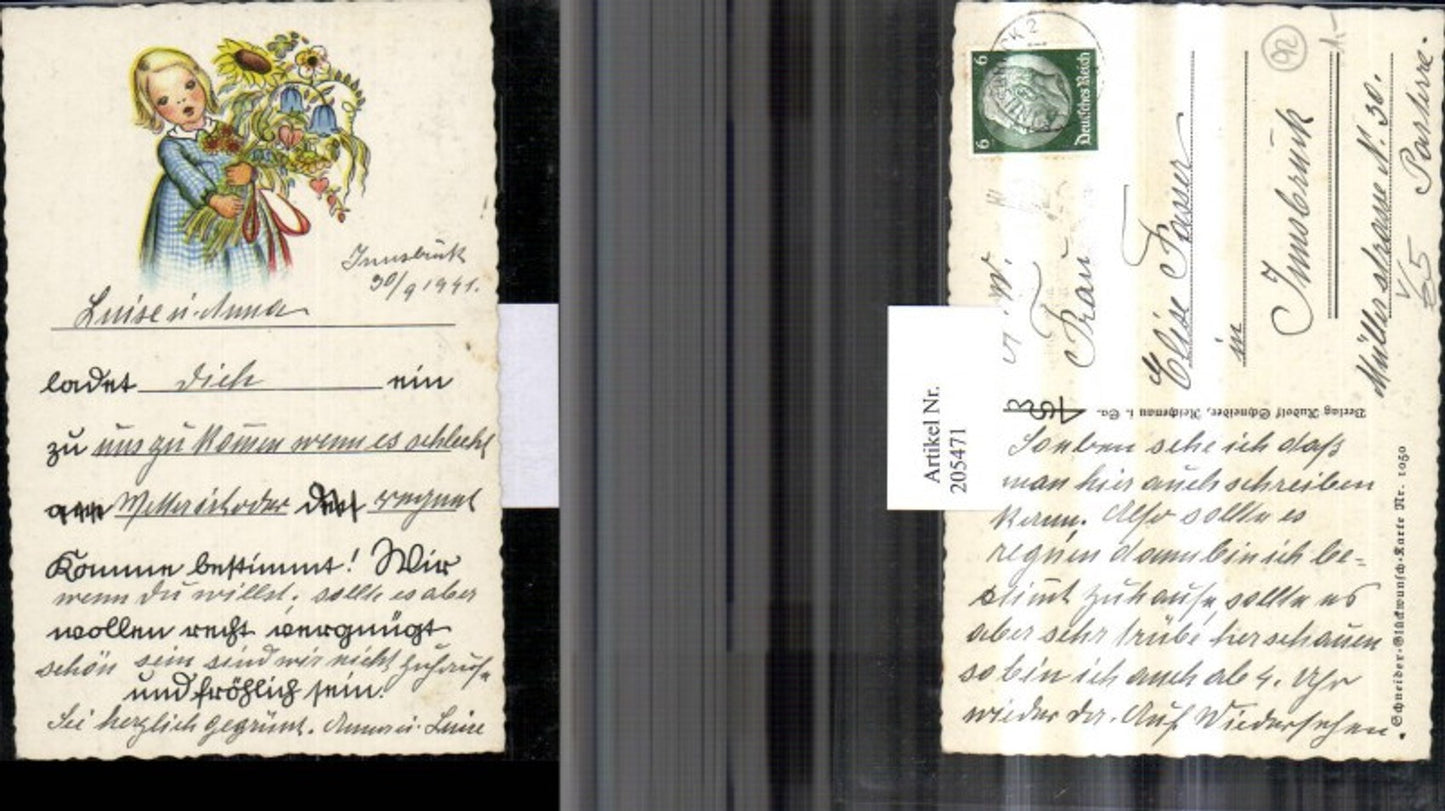 Innsbruck
30/9 1941.
Luise u. Anna
ladet dich ein
zu uns zu kommen wenn es schlecht
Wetter ist oder regnet
Komme bestimmt! Wir
wenn du willst. sollte es aber
wollen recht vergnügt
schön sein sind wir nicht zuhause
und fröhlich sein.
Sei herzlich gegrüsst. Anna u. Luise
Artikel Nr.
205471
6 6
Deutsches Reich
92
1.-
Frau
Elise Fasser
in
Innsbruck
Müllerstrasse N. 30.
Parterre.
Verlag Rudolf Schneider, Reichenau i. Sa.
Schneider-Glückwunsch-Karte Nr. 1050
Soeben sehe ich daß
man hier auch schreiben
kann. Also sollte es
regnen dann bin ich be-
stimt zuhause, sollte es
aber sehr trübe herschauen
so bin ich auch ab 4. Uhr
wieder da. Auf Wiedersehen.